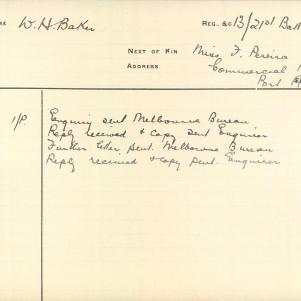 RE W. H. Baker REG. &C 13/21st Batt
NEXT OF KIN Miss F. Pereira
ADDRESS Commercial
Port
1/P. Enquiry sent Melbourne Bureau
Reply received & copy sent Enquirer
Further letter sent Melbourne Bureau
Reply received & copy sent Enquirer